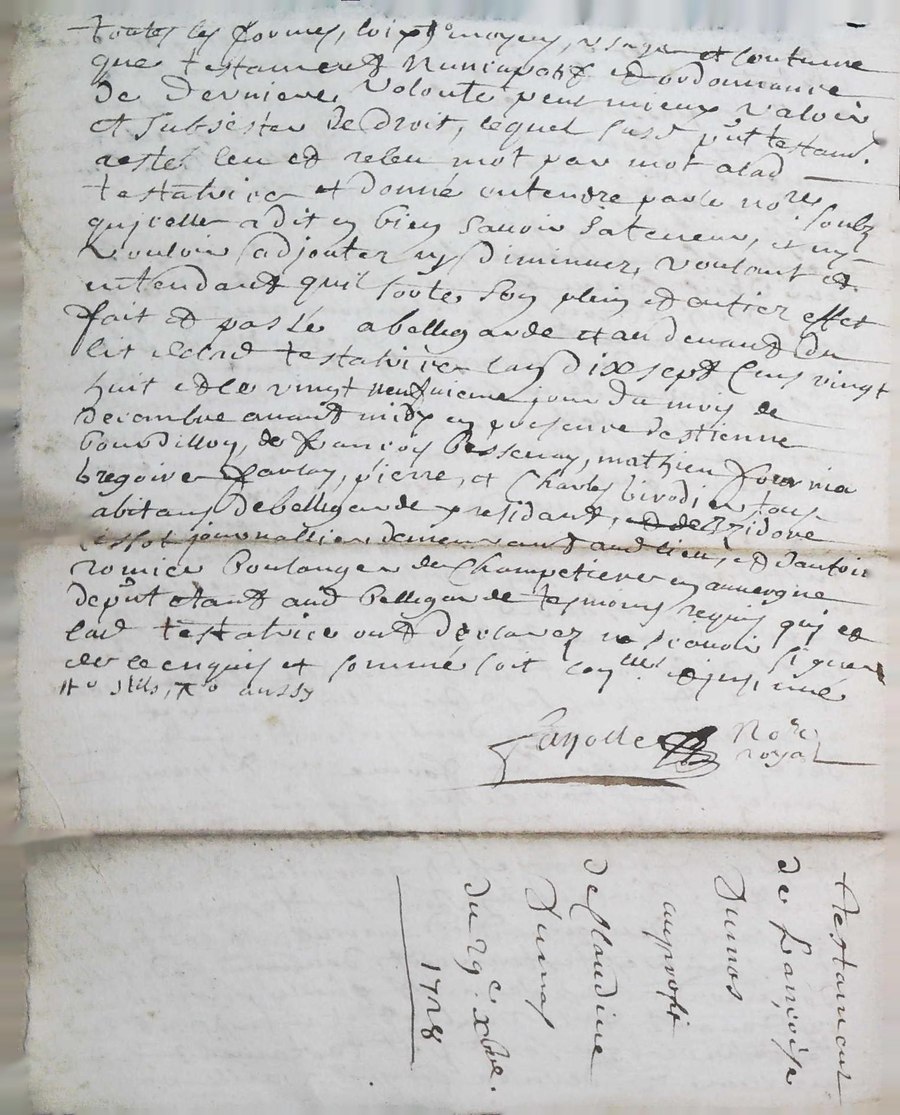 toutes les formes, loix, moyens, usage et coutume
que testament nuncupatif et ordonnance
de derniere volonté peut mieux valoir
et subsister de droit, lequel susd pnt testam.
a esté leu et releu mot par mot a lad
testatrice et donné entendre par le no.re soubz
qu'icelle a dit en bien savoir sa teneur, et ny
vouloir adjouter ny diminuer, voulant et
entendant quil sorte son plein et entier effet
fait et passé a bellegarde et au devant du
lit de lad testatrice lan dix sept cens vingt
huit et le vingt neufvieme jour du mois de
decembre avant midy en presence destienne
bourdillon, de francois Bessenay, mathieu fournia
Gregoire, pierre, et Charles birodier tous
abitans de bellegarde y residant, Izidore
journallier demeurant aud lieu, et dantoin
romier boulanger de Champetieres en auvergne
de pnt etant aud Bellegarde tesmoins requis qui et
lad testatrice ont declarez ne scavoir signer
de ce enquis et sommé soit et insinué
aussy
fayolle No.re
royal
testament
de francoise
Dumas
au profit
de Claudine
Dumas
du 29e xbre.
1728